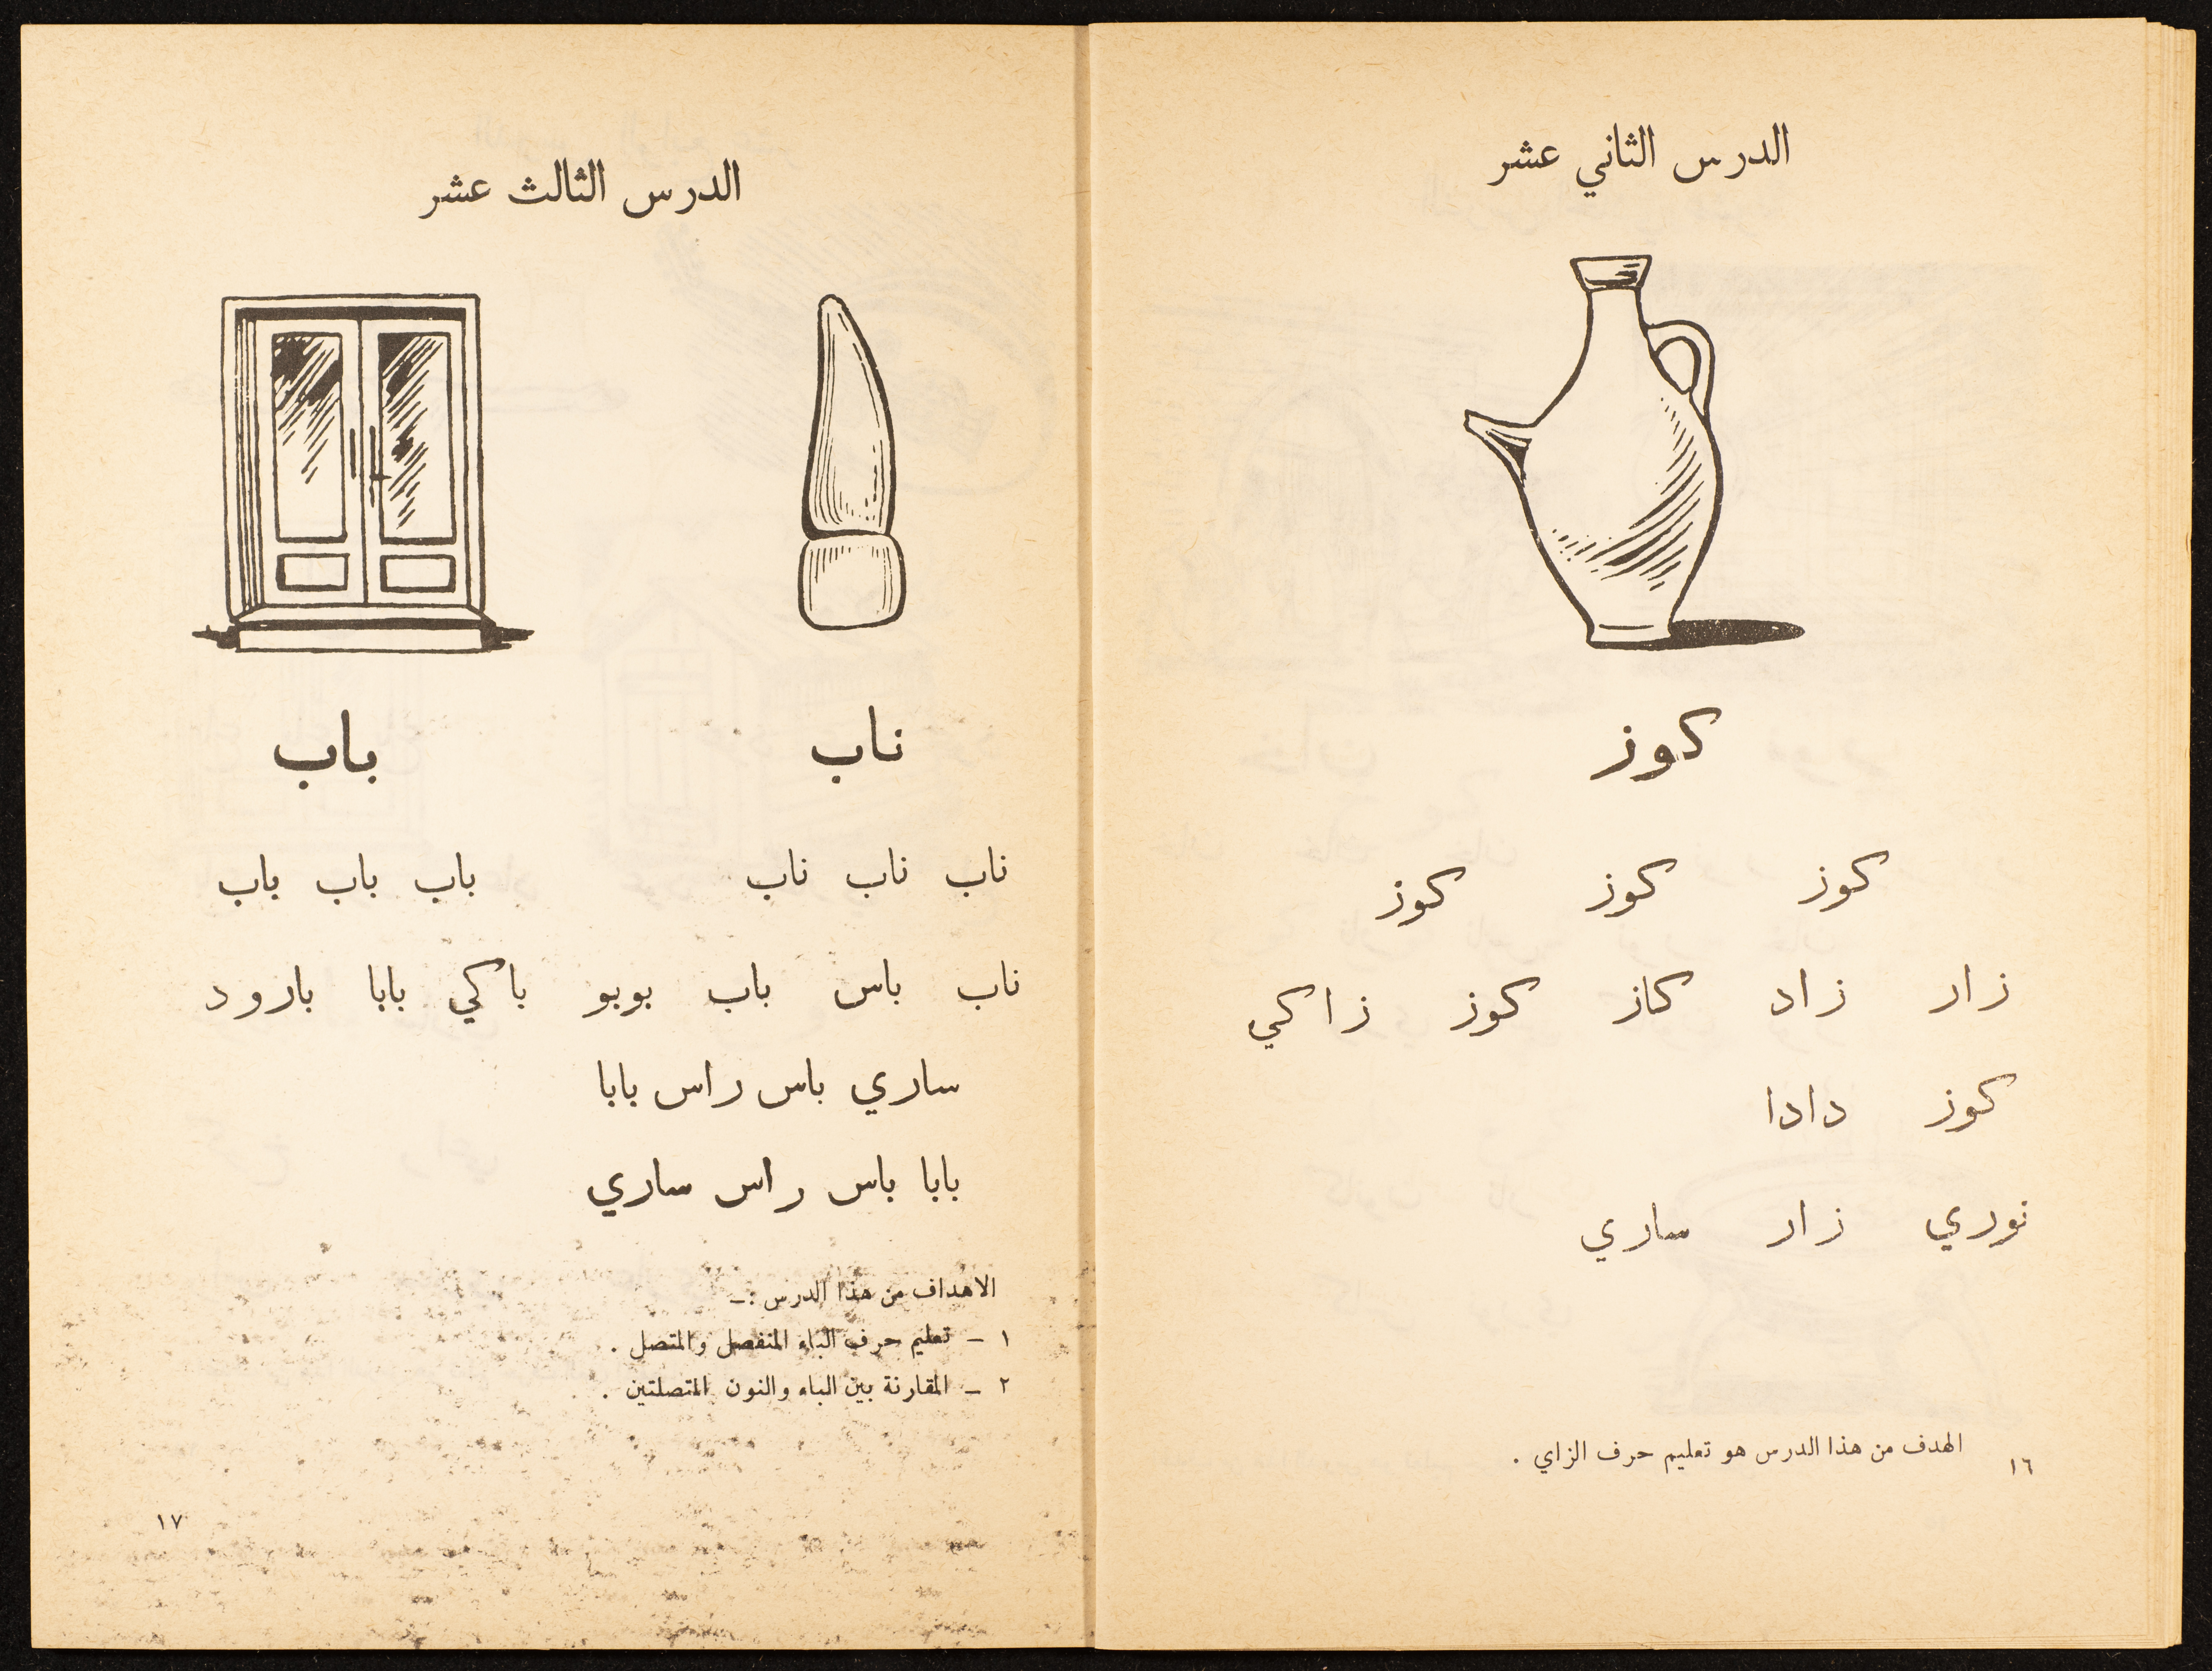 الدرس الثاني عشر
كوز
كوز كوز كوز
زار زاد كاز كوز زاكي
كوز دادا
نوري زار ساري
الهدف من هذا الدرس هو تعليم حرف الزاي .
١٦
الدرس الثالث عشر
ناب باب
ناب ناب ناب باب باب باب
ناب باس باب بوبو باكي بابا بارود
ساري باس راس بابا
بابا باس راس ساري
الاهداف من هذا الدرس :ـ
١ ـ تعليم حرف الباء المنفصل والمتصل .
٢ ـ المقارنة بين الباء والنون المتصلتين .
١٧